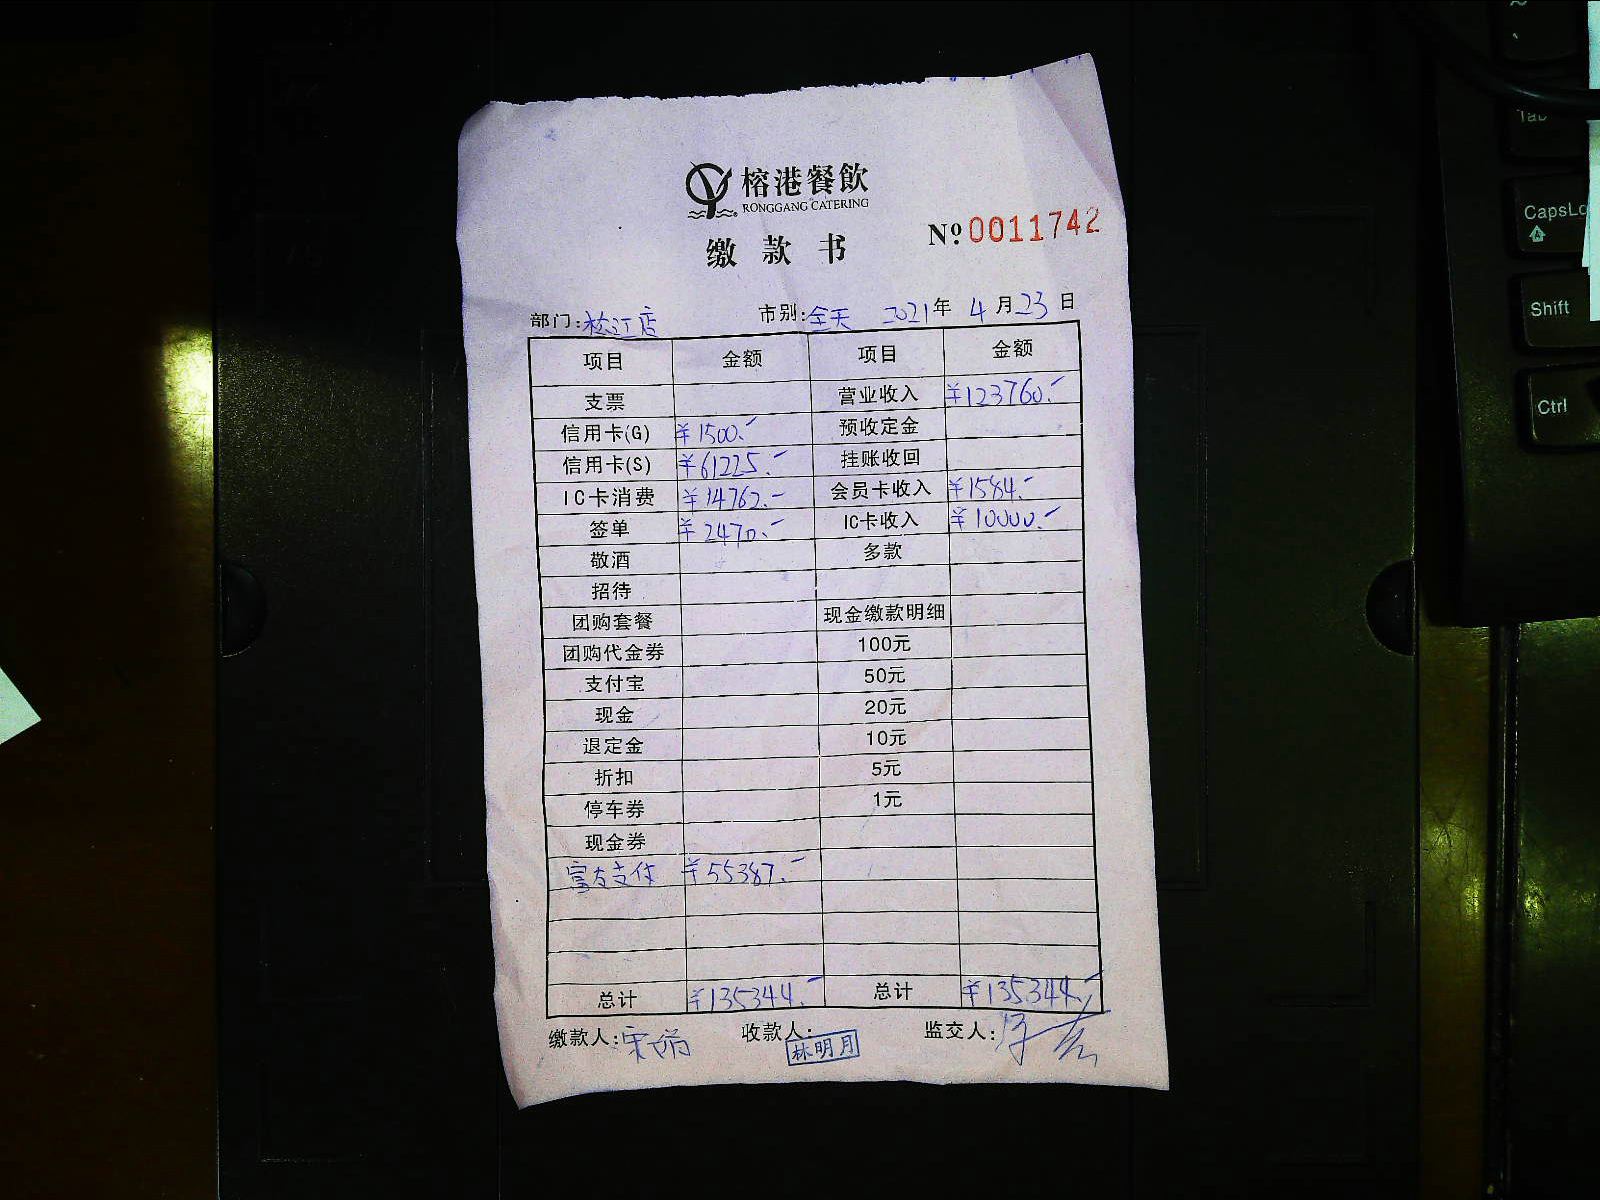 榕港餐飲
RONGGANG CATERING
缴款书 Nº 0011742
部门:松江店 市别:全天 2021年 4月23日
项目 金额 项目 金额
支票 营业收入 ¥123760.-
信用卡(G) ¥1500.- 预收定金
信用卡(S) ¥61225.- 挂账收回
IC卡消费 ¥14762.- 会员卡收入 ¥1584.-
签单 ¥2470.- IC卡收入 ¥10000.-
敬酒 多款
招待
团购套餐 现金缴款明细
团购代金券 100元
支付宝 50元
现金 20元
退定金 10元
折扣 5元
停车券 1元
现金券
富友支付 ¥55387.-
总计 ¥135344.- 总计 ¥135344.-
缴款人: 收款人: 林明月 监交人:
Tab
CapsLo
Shift
Ctrl